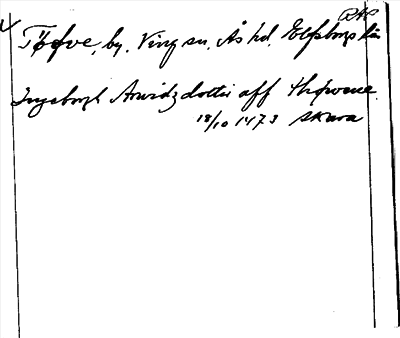 RAP
Töøve, by. Ving sn, Ås hd. Elfsborgs län
Ingeborgh Arwidz dotter aff Thøwene
18/10 1473 Skara